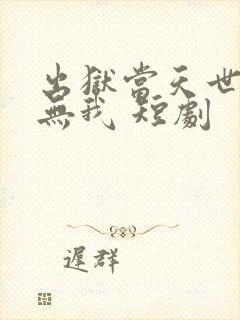 出獄當天世
無我 短劇
遲群